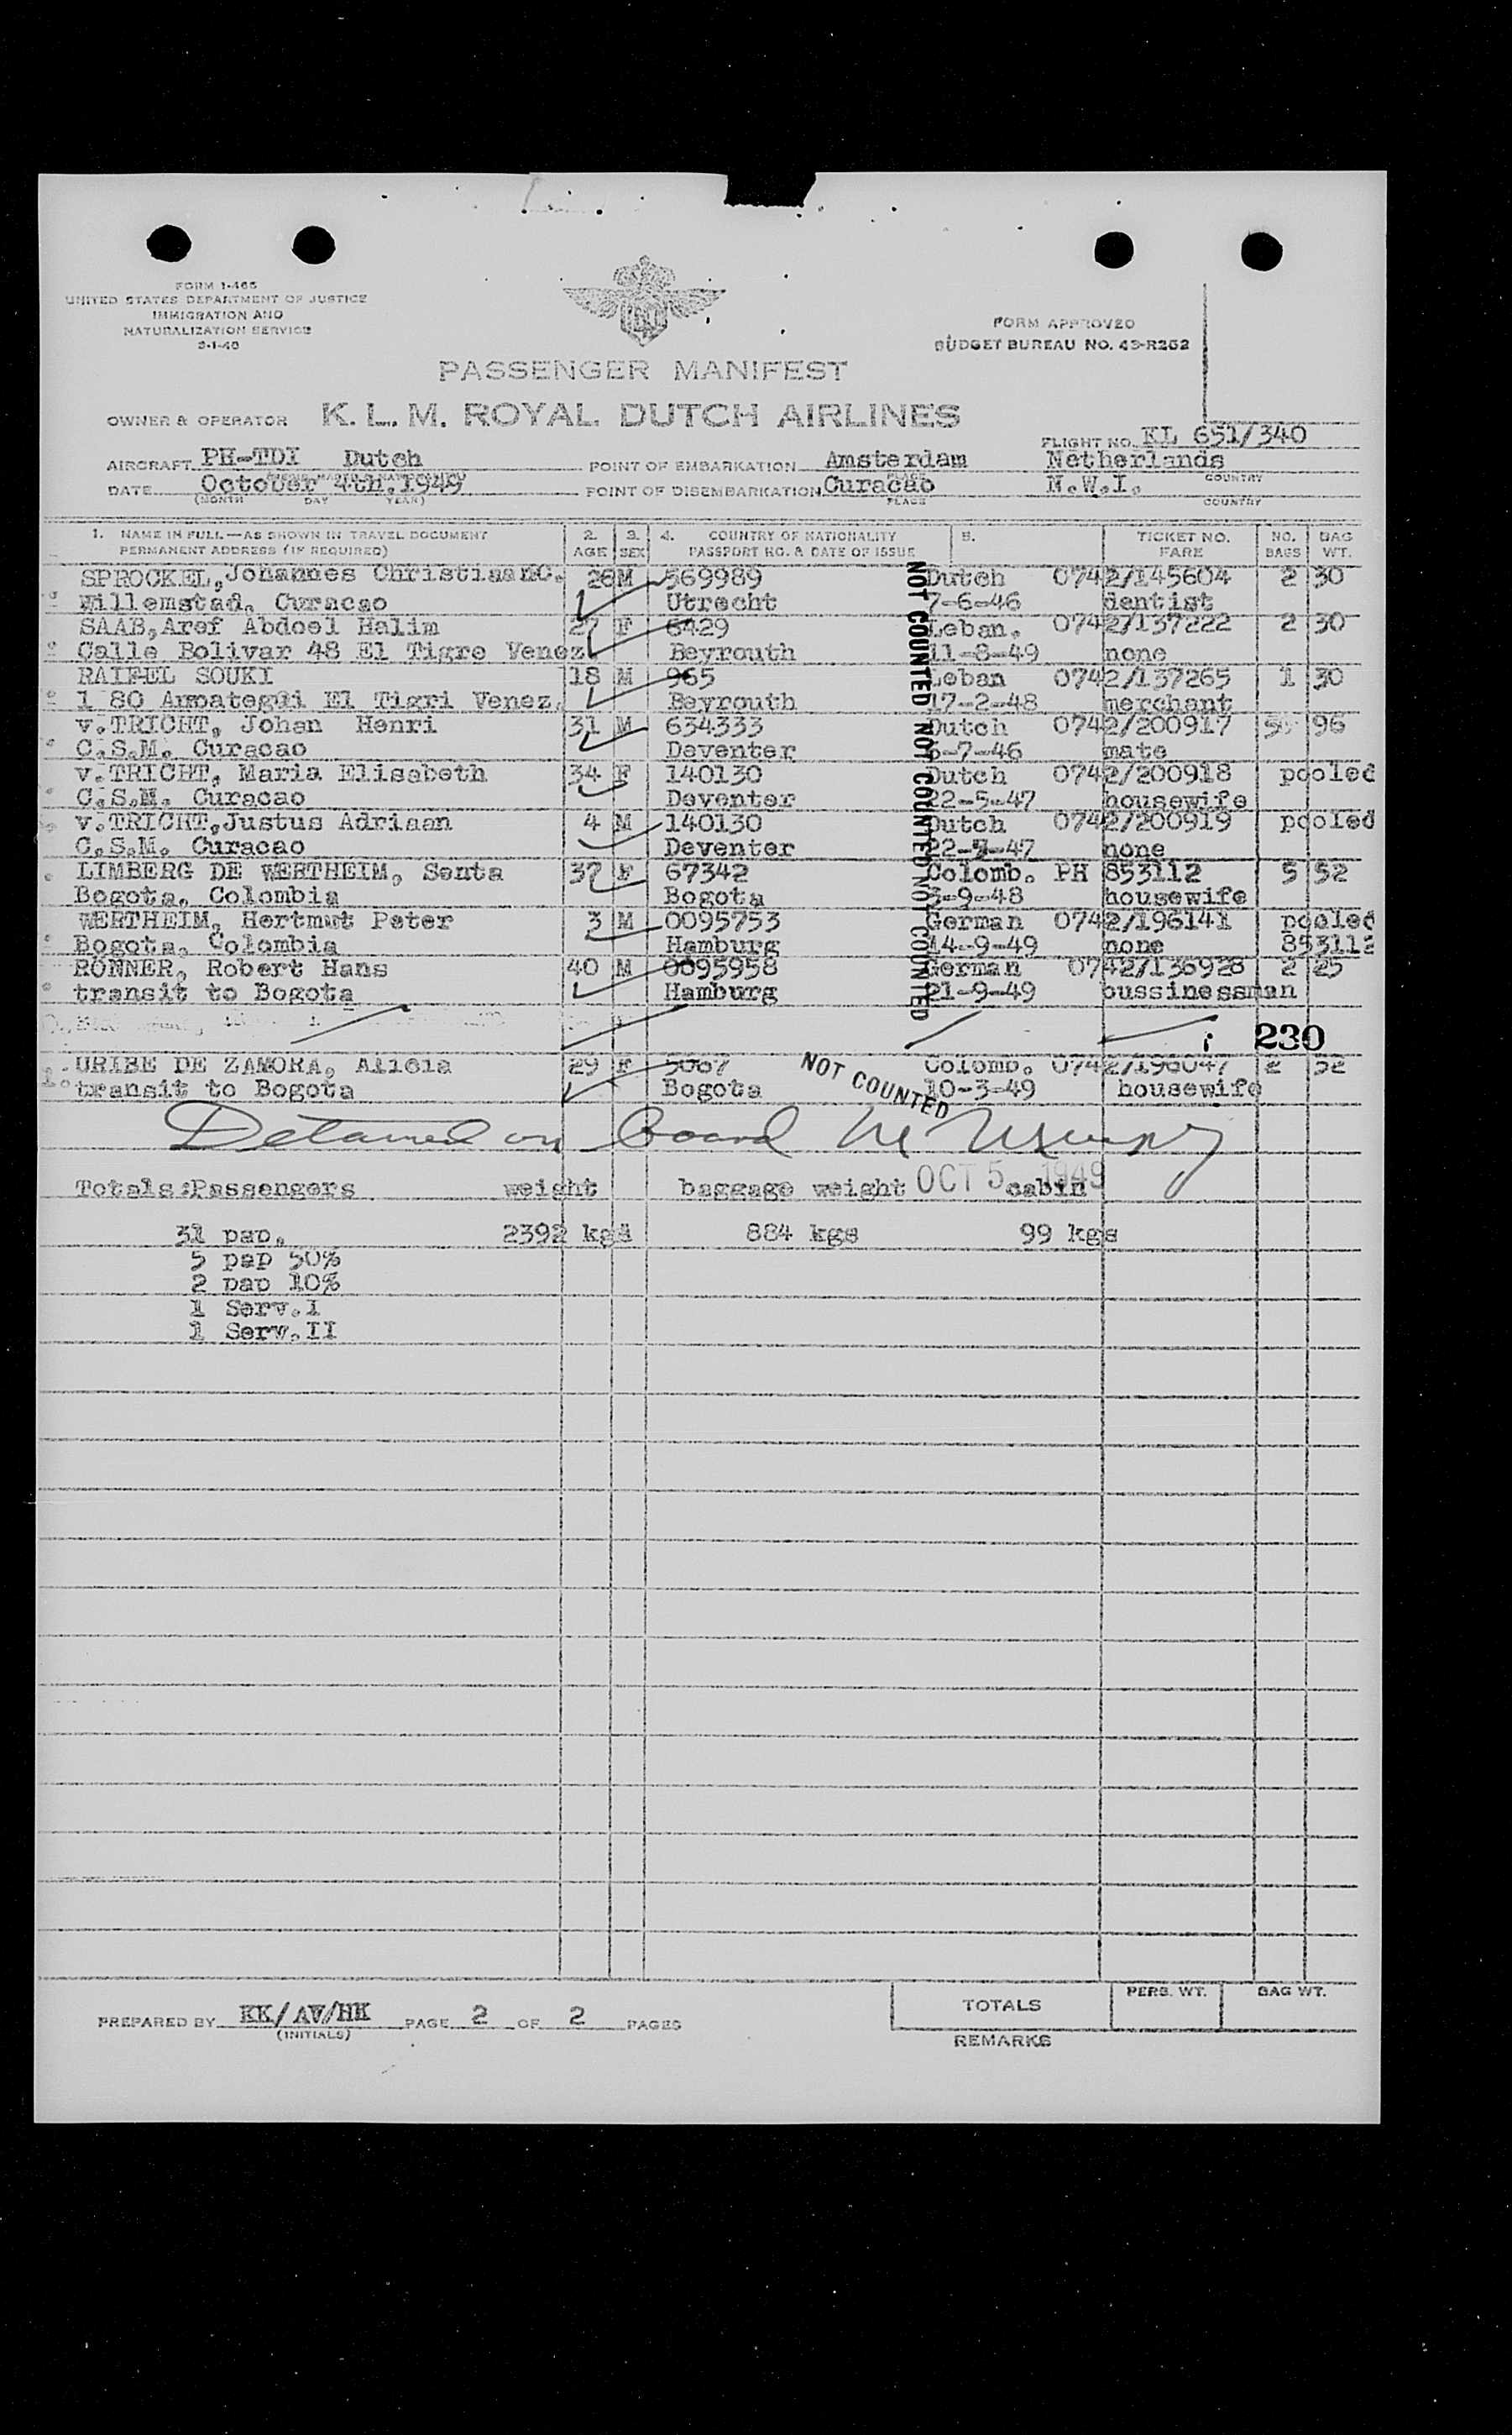 FORM I-466
UNITED STATES DEPARTMENT OF JUSTICE
IMMIGRATION AND
NATURALIZATION SERVICE
FORM APPROVED
BUDGET BUREAU NO. 43-R252
PASSENGER MANIFEST
OWNER & OPERATOR K. L. M. ROYAL DUTCH AIRLINES
FLIGHT NO. KL 651/340
AIRCRAFT PH-TDI Dutch POINT OF EMBARKATION Amsterdam Netherlands
PLACE COUNTRY
DATE October 4th.1949 POINT OF DISEMBARKATION Curacao N.W.I.
(MONTH DAY YEAR) PLACE COUNTRY
1. NAME IN FULL—AS SHOWN IN TRAVEL DOCUMENT 2. 3. 4. COUNTRY OF NATIONALITY 5. TICKET NO. NO. BAG
PERMANENT ADDRESS (IF REQUIRED) AGE SEX PASSPORT NO. & DATE OF ISSUE FARE BAGS WT.
SPROCKEL, Johannes Christiaan C. 28 M 569989 Dutch 0742/145604 2 30
Willemstad, Curacao Utrecht 7-6-46 dentist
SAAB, Aref Abdoel Halim 27 F 6429 Leban. 0742/137222 2 30
Calle Bolivar 48 El Tigre Venez. Beyrouth 11-8-49 none
SOUKI 18 M 965 Leban 0742/137265 1 30
1 80 El Tigri Venez. Beyrouth 17-2-48 merchant
v.TRICHT, Johan Henri 31 M 634333 Dutch 0742/200917 96
C.S.M. Curacao Deventer 6-7-46 mate
v.TRICHT, Maria Elisabeth 34 F 140130 Dutch 0742/200918 pooled
C.S.M. Curacao Deventer 22-5-47 housewife
v.TRICHT, Justus Adriaan 4 M 140130 Dutch 0742/200919 pooled
C.S.M. Curacao Deventer none
LIMBERG DE WERTHEIM, Senta 37 F 67342 Colomb. PH 853112 5 52
Bogota, Colombia Bogota 3-9-48 housewife
WERTHEIM, Hertmut Peter 3 M 0095753 German 0742/196141 pooled
Bogota, Colombia Hamburg 14-9-49 none 853112
RÖNNER, Robert Hans 40 M 0095958 German 0742/136928 2 25
transit to Bogota Hamburg 21-9-49 bussinessman
NOT COUNTED NOT COUNTED NOT COUNTED
230
URIBE DE ZAMORA, Alicia 29 F 5067 Colomb. 0742/196047 2 32
transit to Bogota Bogota 10-3-49 housewife
NOT COUNTED
Detained on board
OCT 5 1949
Totals:Passengers weight baggage weight cabin
31 pap. 2392 kgs 884 kgs 99 kgs
5 pap 50%
2 pap 10%
1 Serv.I
1 Serv.II
PREPARED BY KK/AV/HK PAGE 2 OF 2 PAGES
(INITIALS)
TOTALS PERS. WT. BAG WT.
REMARKS